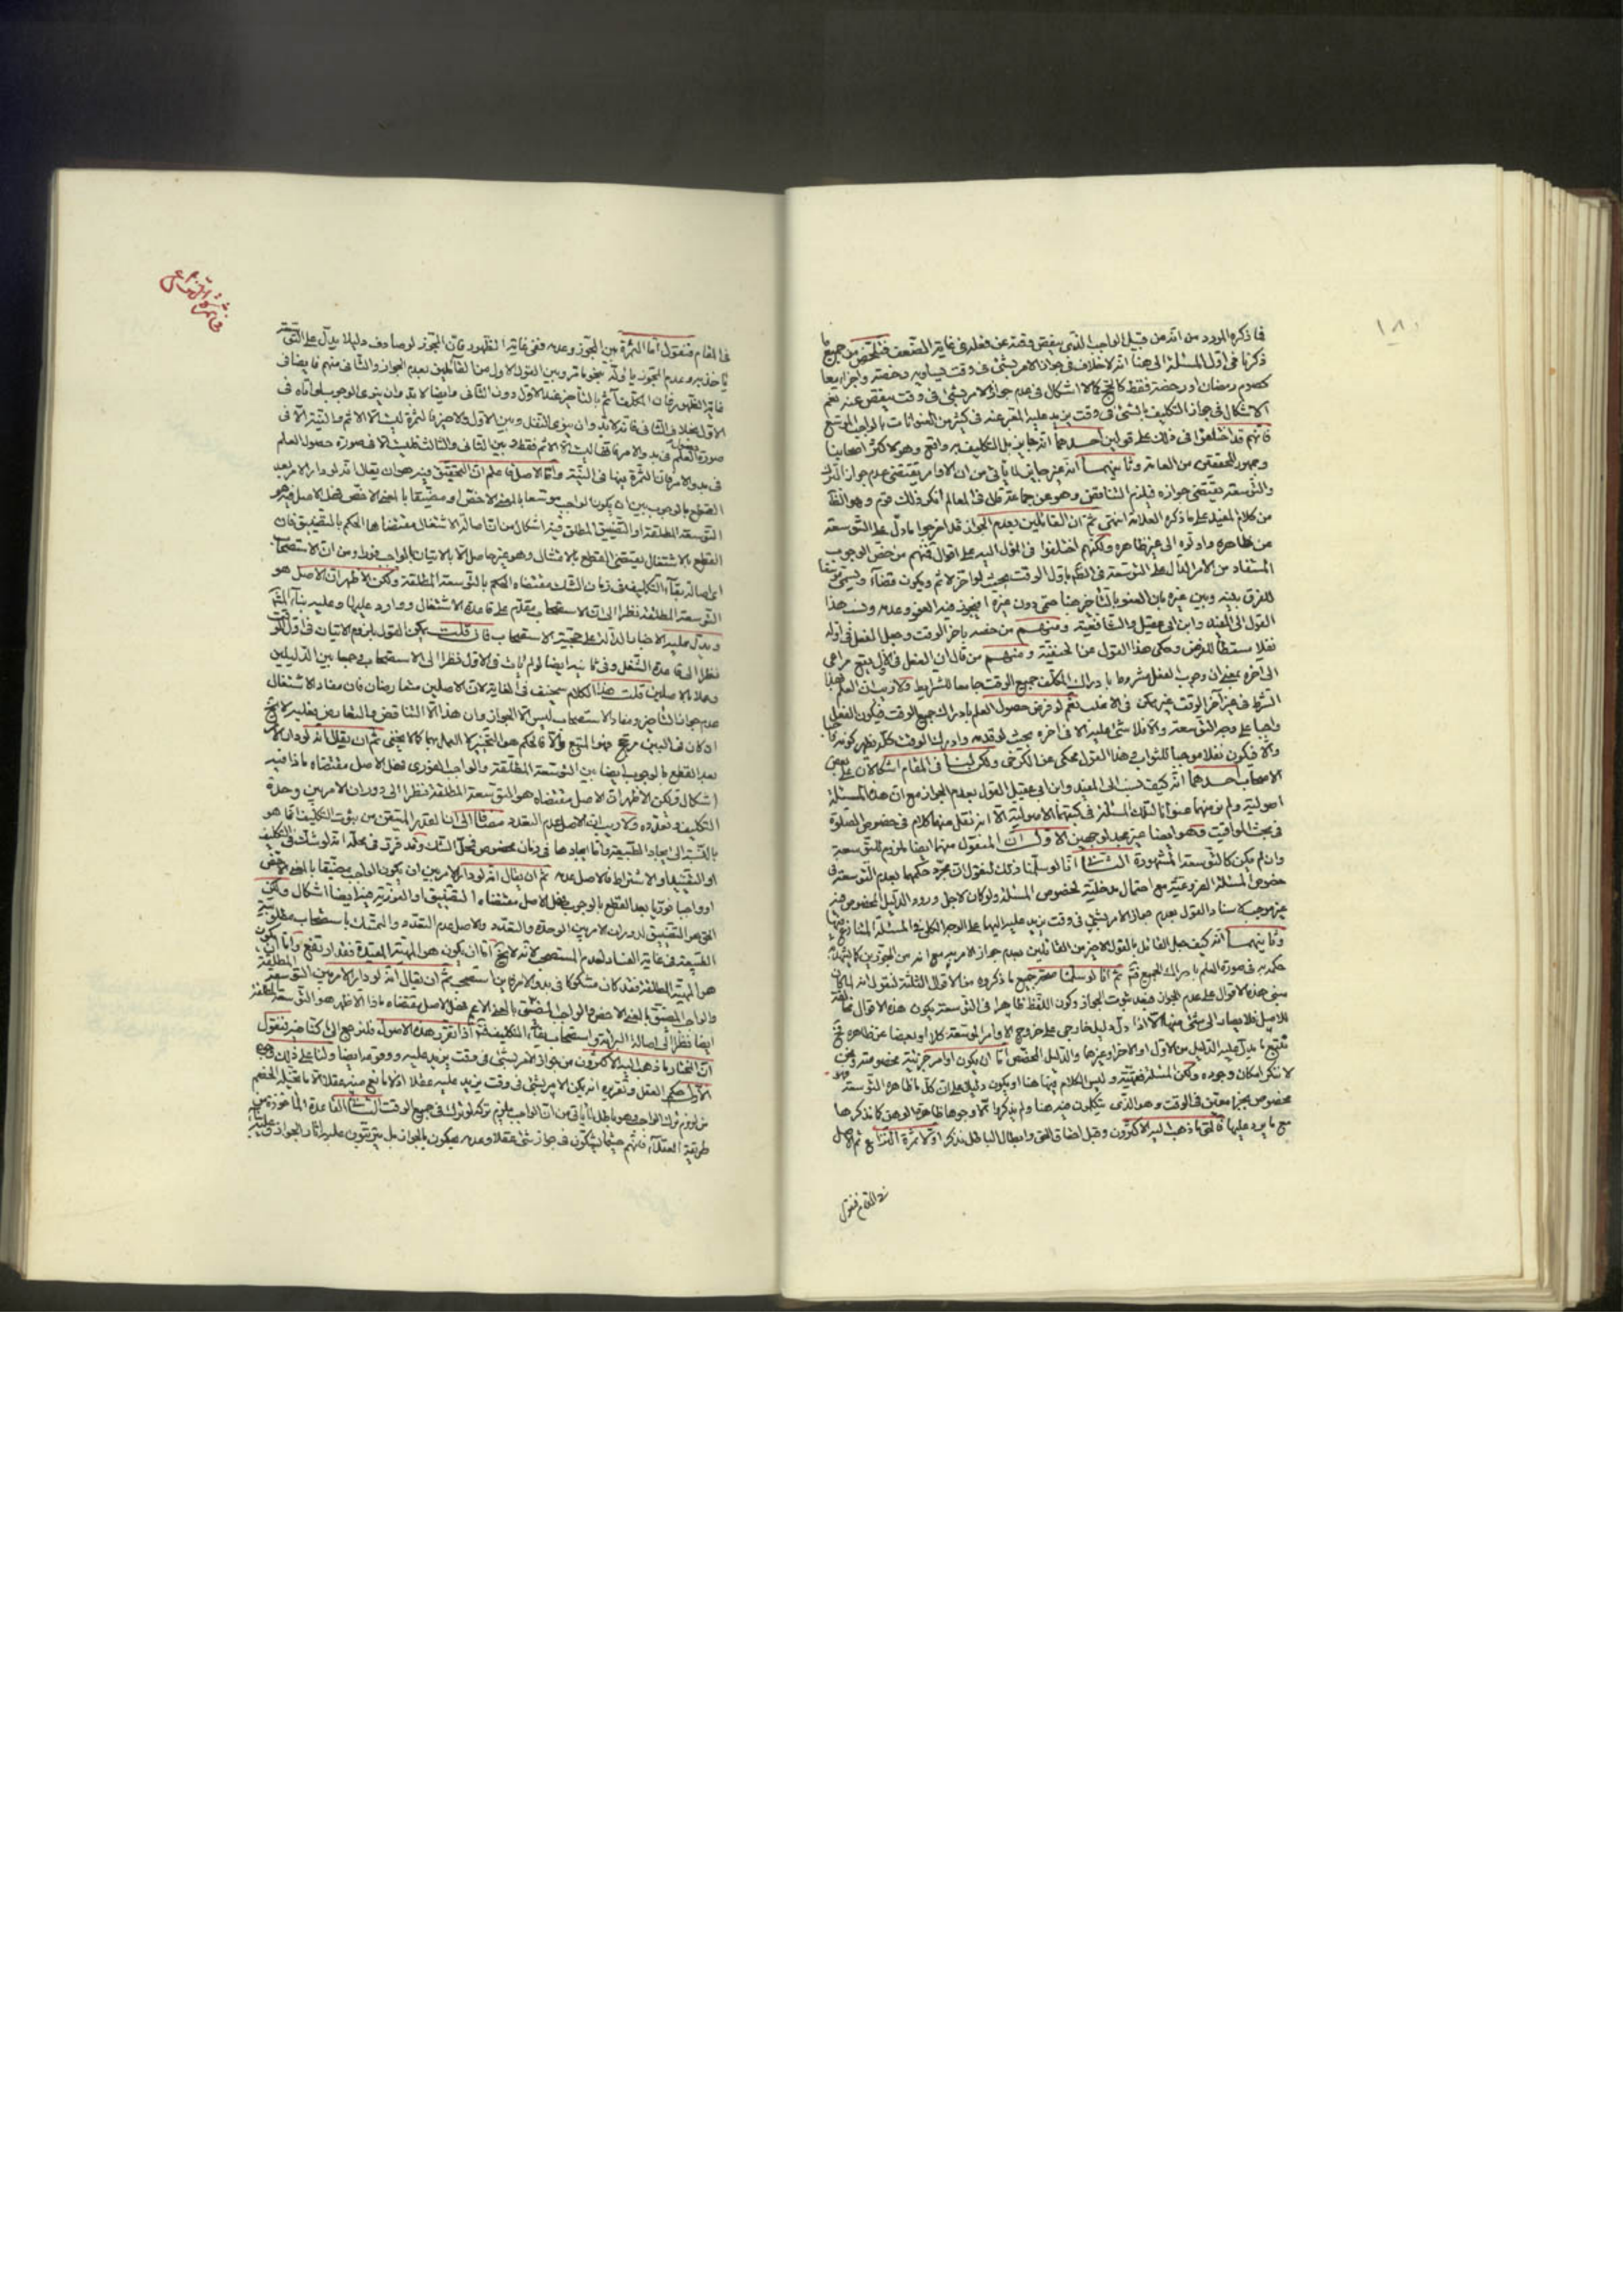 ١٨٠
فما ذكره المورد من انه من قبيل الواجب الذى ينقص وقته عن فعله فى غاية الضعف فتلخص من جميع ما
ذكرنا من اول المسئلة الى هنا انه لا خلاف فى جواز الامر بشئ فى وقت يساويه رخصة واجزاء معا
كصوم رمضان او رخصة فقط كالحج كما لا اشكال فى عدم جواز الامر بشئ فى وقت ينقص عنه نعم
الاشكال فى جواز التكليف بالشئ فى وقت يزيد عليه المعبر عنه فى كثير من العنوانات بالواجب الموسع
فانهم قد اختلفوا فى ذلك على قولين احدهما انه جايز بل التكليف به واقع وهو لاكثر اصحابنا
وجمهور المحققين من العامة وثانيهما انه غير جايز لما يأتى من ان الاوامر يقتضى عدم جواز الترك
والتوسعة يقتضى جوازه فيلزم التناقض وهو عن جماعة قال فى المعالم انكر ذلك قوم وهو الظ
من كلام المفيد على ما ذكره العلامة انتهى ثم ان القائلين بعدم الجواز قد اخرجوا ما دل على التوسعة
عن ظاهره واولوه الى غير ظاهره ولكنهم اختلفوا فى المؤل اليه على اقوال فمنهم من خص الوجوب
المستفاد من الامر الدال على التوسعة فى الظم باول الوقت بحيث لو اخر لاثم ويكون قضاء ويسمى موسعا
للفرق بينه وبين غيره بان العفو بالتأخير هنا حتمى دون غيره اذ يجوز فيه العفو وعدمه ونسب هذا
القول الى المفيد وابن ابى عقيل والشافعية ومنهم من خصه باخر الوقت وجعل الفعل فى اوله
نفلا يسقط الفرض وحكى هذا القول عن الحنفية ومنهم من قال ان الفعل فى الاول يقع مراعى
الى آخره بمعنى ان وجوب الفعل مشروط بادراك المكلف جميع الوقت جامعا للشرايط ولا ريب ان العلم بهذا
الشرط فى غير آخر الوقت غير ممكن فى الاغلب نعم لو فرض حصول العلم بادراك جميع الوقت فيكون الفعل
واجبا على وجه التوسعة والا فلا شئ عليه الا فى اخره بحيث لو قدمه وادرك الوقت كله ظهر كونه واجبا
والا فيكون نفلا موجبا للثواب وهذا القول محكى عن الكرخى ولكن لنا فى المقام اشكالان على بعض
الاصحاب احدهما انه كيف نسب الى المفيد وابن ابى عقيل القول بعدم الجواز مع ان هذه المسئلة
اصولية ولم نر منهما عنوانا لتلك المسئلة فى كتبهما الاصولية الا انه نقل منهما كلام فى خصوص الصلوة
فى بحث المواقيت وهو ايضا غير مجد لوجهين الاول ان المنقول منهما ايضا ملزوم للتوسعة
وان لم يكن كالتوسعة المشهورة الثانى انا لو سلمنا ذلك لنقول ان مجرد حكمهما بعدم التوسعة فى
خصوص المسئلة الفرعية مع احتمال مدخلية لخصوص المسئلة ولو كان لاجل ورود الدليل المخصوص فيه
غير موجب لاسناد القول بعدم جواز الامر بشئ فى وقت يزيد عليه اليهما على الوجه الكلى فى المسئلة المتنازع فيها
وثانيهما انه كيف جعل القائل بالقول الاخير من القائلين بعدم جواز الامر به مع انه من المجوزين كما يشهد
حكمه به فى صورة العلم بادراك الجميع فتم ثم انا لو سلمنا صحة جميع ما ذكروه من الاقوال الثلثة لنقول انه لما كان
مبنى هذه الاقوال على عدم الجواز فبعد ثبوت الجواز وكون اللفظ ظاهرا فى التوسعة يكون هذه الاقوال مخالفة
للاصل فلا يصار الى شئ منها الا اذا دل دليل خارجى على خروج الاوامر الموسعة كلا او بعضا عن ظاهره فح
نتبع ما يدل عليه الدليل من الاول او الاخر او غيرها والدليل المخصص اما ان يكون اوامر جزئية مخصوصة ونحن
لا ننكر امكان وجوده ولكن المسئلة فقهية وليس الكلام فيها هنا او يكون دليل على ان كل ما ظاهره التوسعة فهو
مخصوص بجزء معين فى الوقت وهو الذى يتكلمون فيه هنا ولم يذكروا الا وجوها ظاهرة الوهن كما نذكرها
مع ما يرد عليها فالحق ما ذهب اليه الاكثرون وقبل احقاق الحق وابطال الباطل نذكر اولا ثمرة النزاع ثم الاصل
فى المقام فنقول
فى المقام فنقول اما الثمرة بين المجوز وعدمه ففى غاية الظهور فان المجوز لو صادف دليلا يدل على التوسعة
يأخذ به وعدم المجوز يأوله بنحو ما مر وبين القول الاول من القائلين بعدم الجواز والثانى منهم فايضا فى
غاية الظهور فان المكلف آثم بالتأخير عند الاول دون الثانى وايضا لا بد وان ينوى الوجوب لو اتاه فى
الاول بخلاف الثانى فانه لا بد وان ينوى النفل وبين الاول والاخير فالثمرة ليست الا الاثم والنية الا فى
صورة العلم فى بدو الامر فانها ليست الا الاثم فقط وبين الثانى والثالث فليست الا فى صورة حصول العلم
فى بدو الامر فان الثمرة بينها فى النية واما الاصل فاعلم ان التحقيق فيه هو ان يقال انه لو دار الامر بعد
القطع بالوجوب بين ان يكون الواجب موسعا بالمعنى الاخص او مضيقا بالمعنى الاخص فهل الاصل فيه هو
التوسعة المطلقة او التضييق المطلق فيه اشكال من ان اصالة الاشتغال مقتضاها الحكم بالتضييق فان
القطع بالاشتغال يقتضى القطع بالامتثال وهو غير حاصل الا بالاتيان بالواجب فورا ومن ان الاستصحاب
اى اصالة بقاء التكليف فى زمان الشك مقتضاه الحكم بالتوسعة المطلقة ولكن الاظهر ان الاصل هو
التوسعة المطلقة نظرا الى ان الاستصحاب مقدم على قاعدة الاشتغال ووارد عليها وعليه بناء المشهور
ويدل عليه الاخبار الدالة على حجية الاستصحاب فان قلت يمكن القول بلزوم الاتيان فى اول الوقت
نظرا الى قاعدة الشغل وفى ثانيه ايضا لو لم يأت فى الاول نظرا الى الاستصحاب وجمعا بين الدليلين
وعملا بالاصلين قلت هذا الكلام سخيف فى الغاية لان الاصلين متعارضان فان مفاد الاشتغال
عدم جواز التأخير ومفاد الاستصحاب ليس الا الجواز وان هذا الا التناقض والتعارض فعليه لا يخ
ان كان فى البين مرجح فهو المتبع والا فالحكم هو التخيير لا العمل بهما كما لا يخفى ثم ان يقال انه لو دار الامر
بعد القطع بالوجوب ايضا بين التوسعة المطلقة والواجب الفورى فهل الاصل مقتضاه ماذا فيه
اشكال ولكن الاظهر ان الاصل مقتضاه هو التوسعة المطلقة نظرا الى دوران الامر بين وحدة
التكليف وتعدده ولا ريب ان الاصل عدم التعدد مضافا الى ان القدر المتيقن من ثبوت التكليف انما هو
بالنسبة الى ايجاد الطبيعة واما ايجادها فى زمان مخصوص فمحل الشك وقد قرر فى محله انه لو شك فى التكليف
او التقييد او الاشتراط فالاصل عدمه ثم ان يقال انه لو دار الامر بين ان يكون الواجب مضيقا بالمعنى الاخص
او واجبا فوريا بعد القطع بالوجوب فهل الاصل مقتضاه التضييق او الفورية فيه ايضا اشكال ولكن
الحق هو التضييق لدوران الامر بين الوحدة والتعدد والاصل عدم التعدد والتمسك باستصحاب مطلوبية
الطبيعة فى غاية الفساد لعدم المستصحب لانه لا يخ اما ان يكون هو المهية المقيدة فقد ارتفع واما ان يكون
هو المهية المطلقة فقد كان مشكوكا فى بدو الامر فاين المستصحب ثم ان يقال انه لو دار الامر بين التوسعة المطلقة
والواجب المضيق بالمعنى الاخص والواجب المضيق بالمعنى الاعم فهل الاصل مقتضاه ماذا الاظهر هو التوسعة المطلقة
ايضا نظرا الى اصالة البرائة واستصحاب بقاء التكليف فتم اذا تقرر هذه الاصول فلنرجع الى ما كنا فيه فنقول
ان المختار ما ذهب اليه الاكثرون من جواز الامر بشئ فى وقت يزيد عليه ووقوعه ايضا ولنا على ذلك وجوه
الاول حكم العقل وتقريره انه يمكن الامر بشئ فى وقت يزيد عليه عقلا اذ لا مانع منه عقلا الا ما تخيله الخصم
من لزوم ترك الواجب وهو باطل لما يأتى من ان الواجب يلزم تركه لو ترك فى جميع الوقت الثانى القاعدة المأخوذة من
طريقة العقلاء فانهم حيثما يشكون فى جواز شئ عقلا وعدمه يحكمون بالجواز بل يترتبون عليه اثار الجواز وعليه